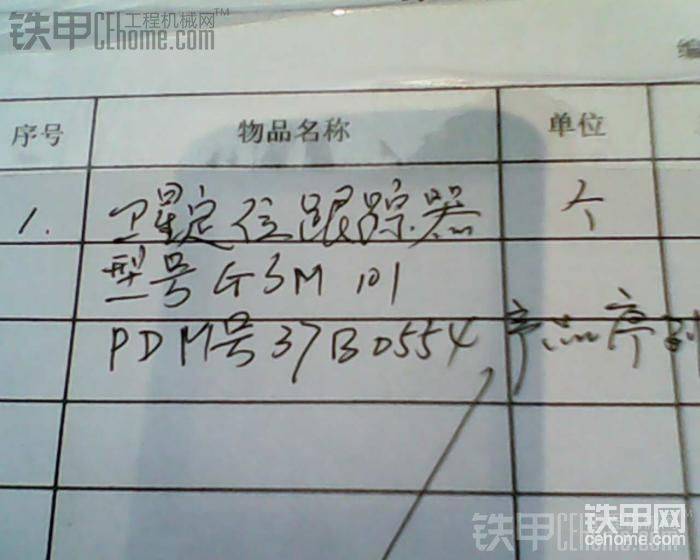 铁甲 工程机械网 CEhome.com
编
序号 物品名称 单位
1. 卫星定位跟踪器 个
型号GSM 101
PDM号37B0554 产品序列
铁甲 CEhome.com
铁甲网
cehome.com